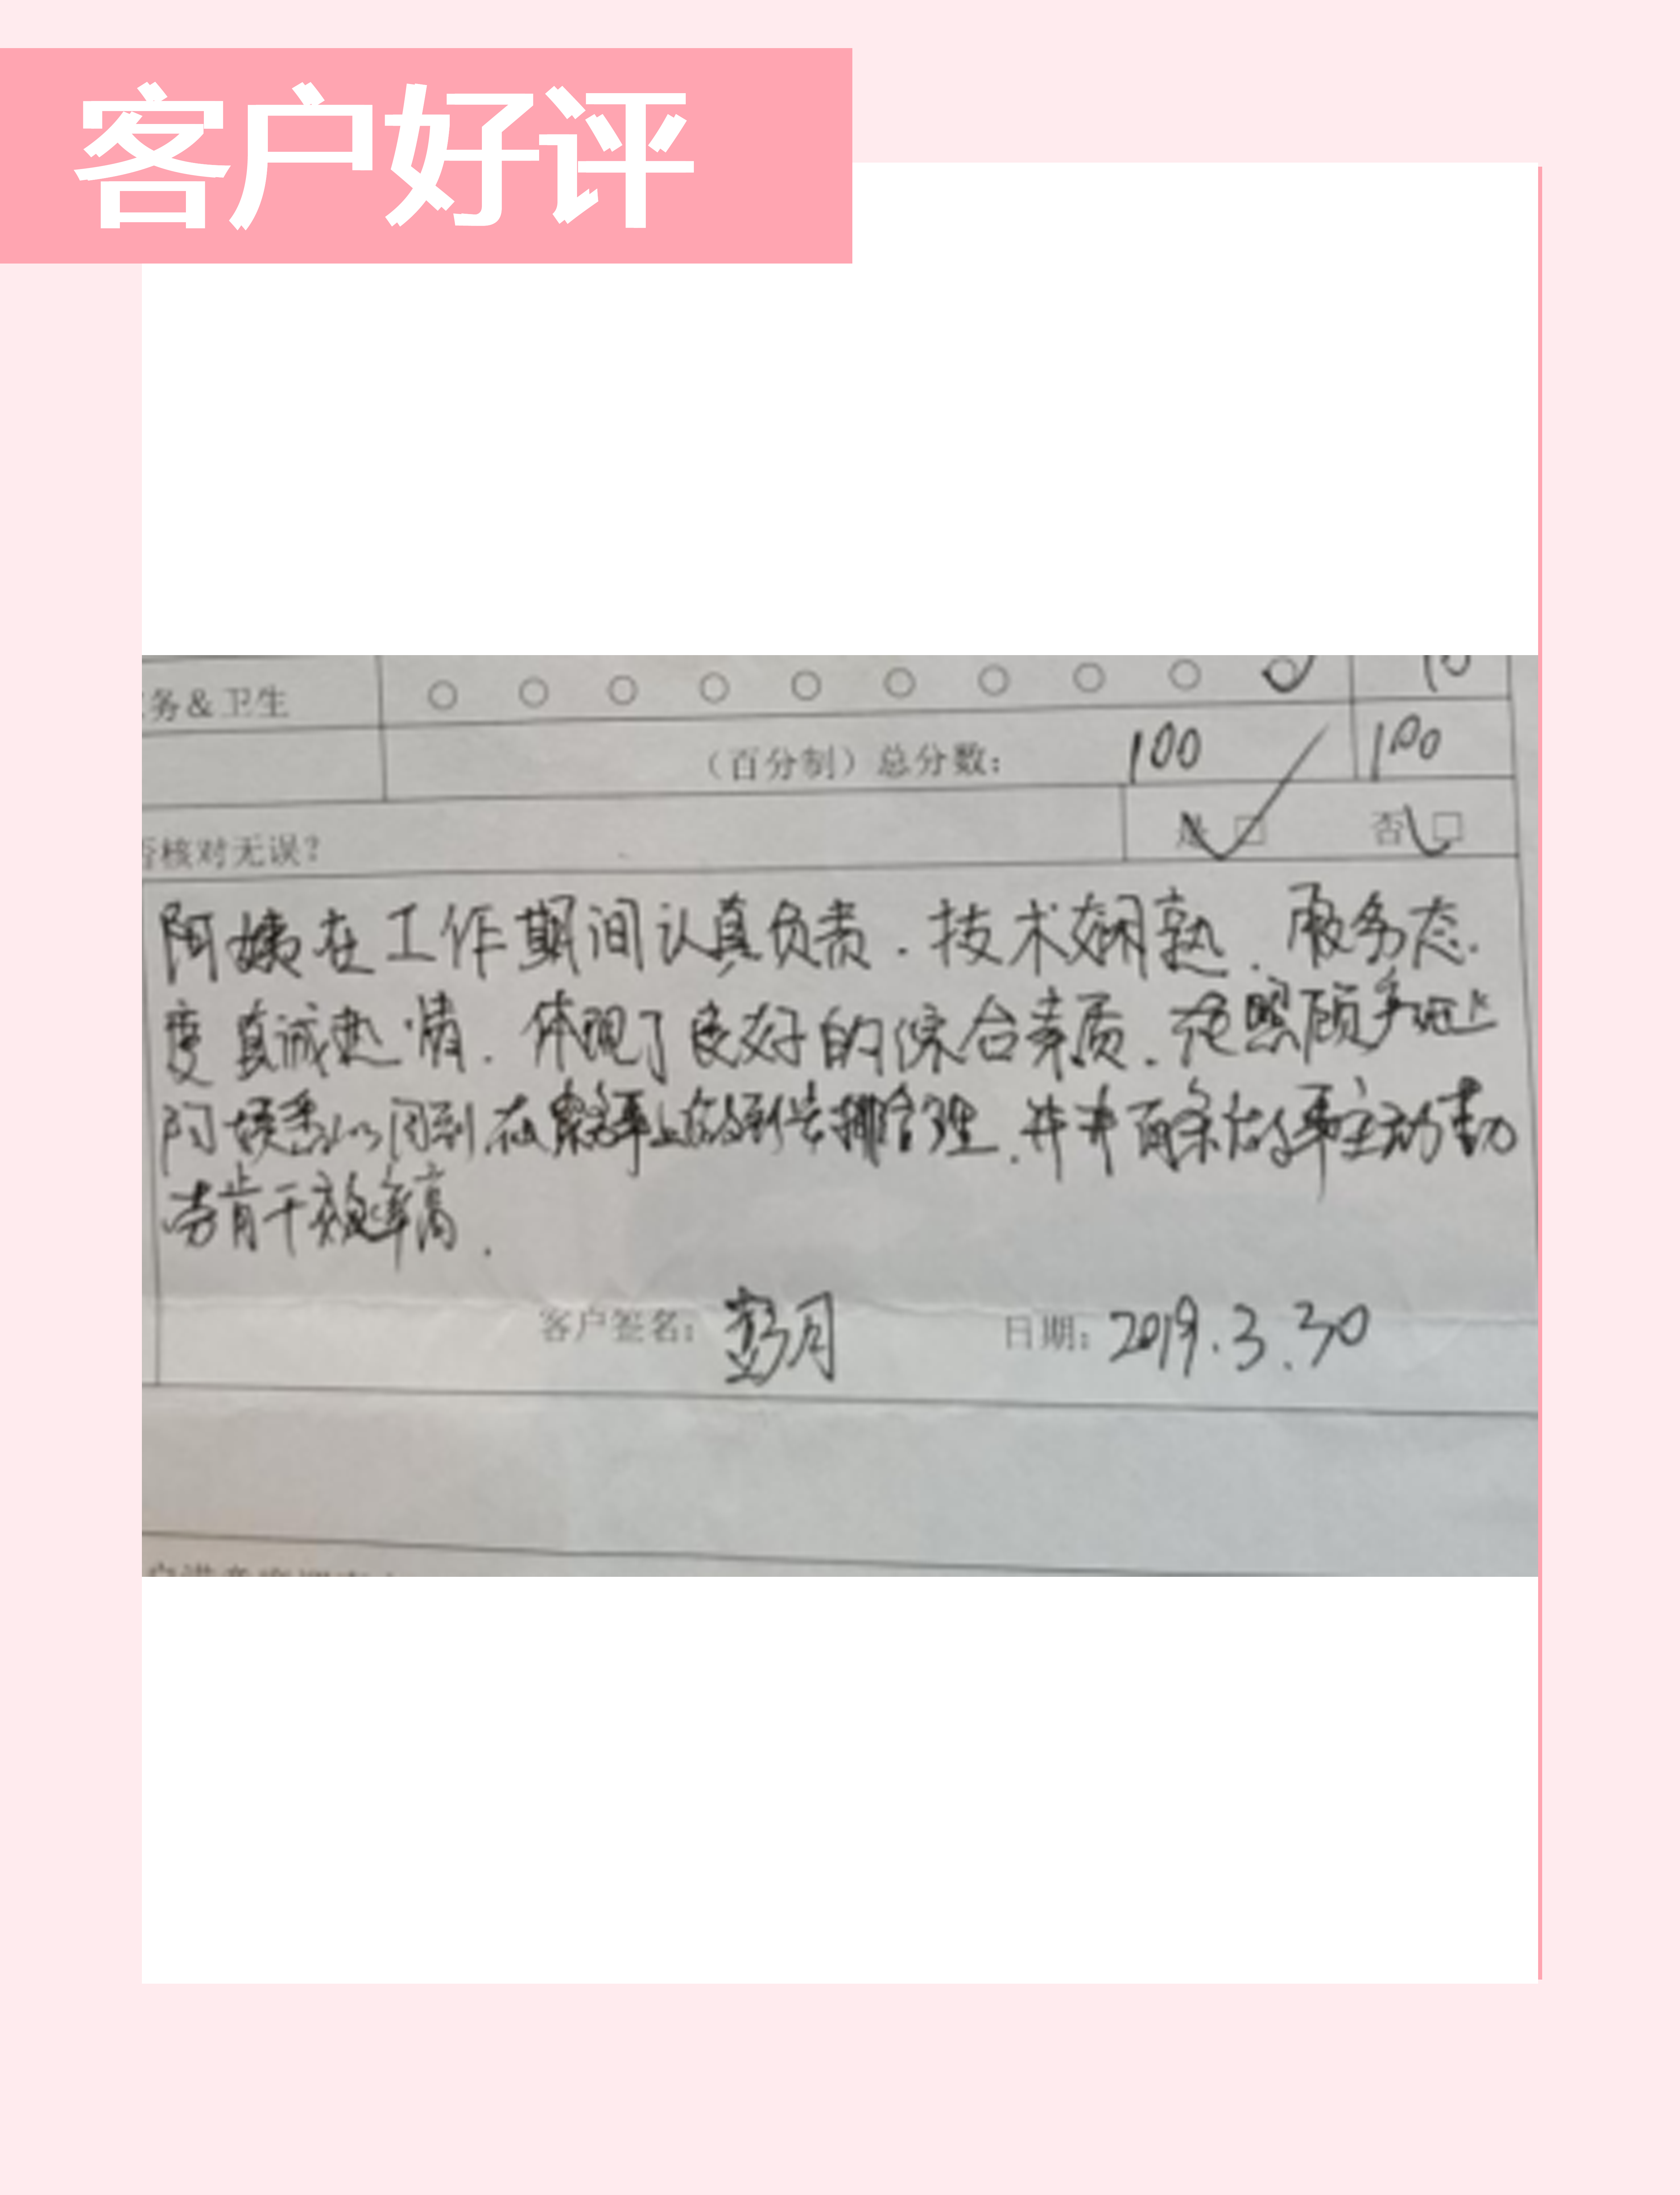 客户好评
务&卫生 10
（百分制）总分数： 100 100
否核对无误？ 是 □ 否 □
阿姨在工作期间认真负责．技术娴熟．服务态
度真诚热情．体现了良好的综合素质．在照顾
周到 在 上 排合理．井井有条 主动勤
劳肯干效率高．
客户签名：彭月 日期：2019.3.30